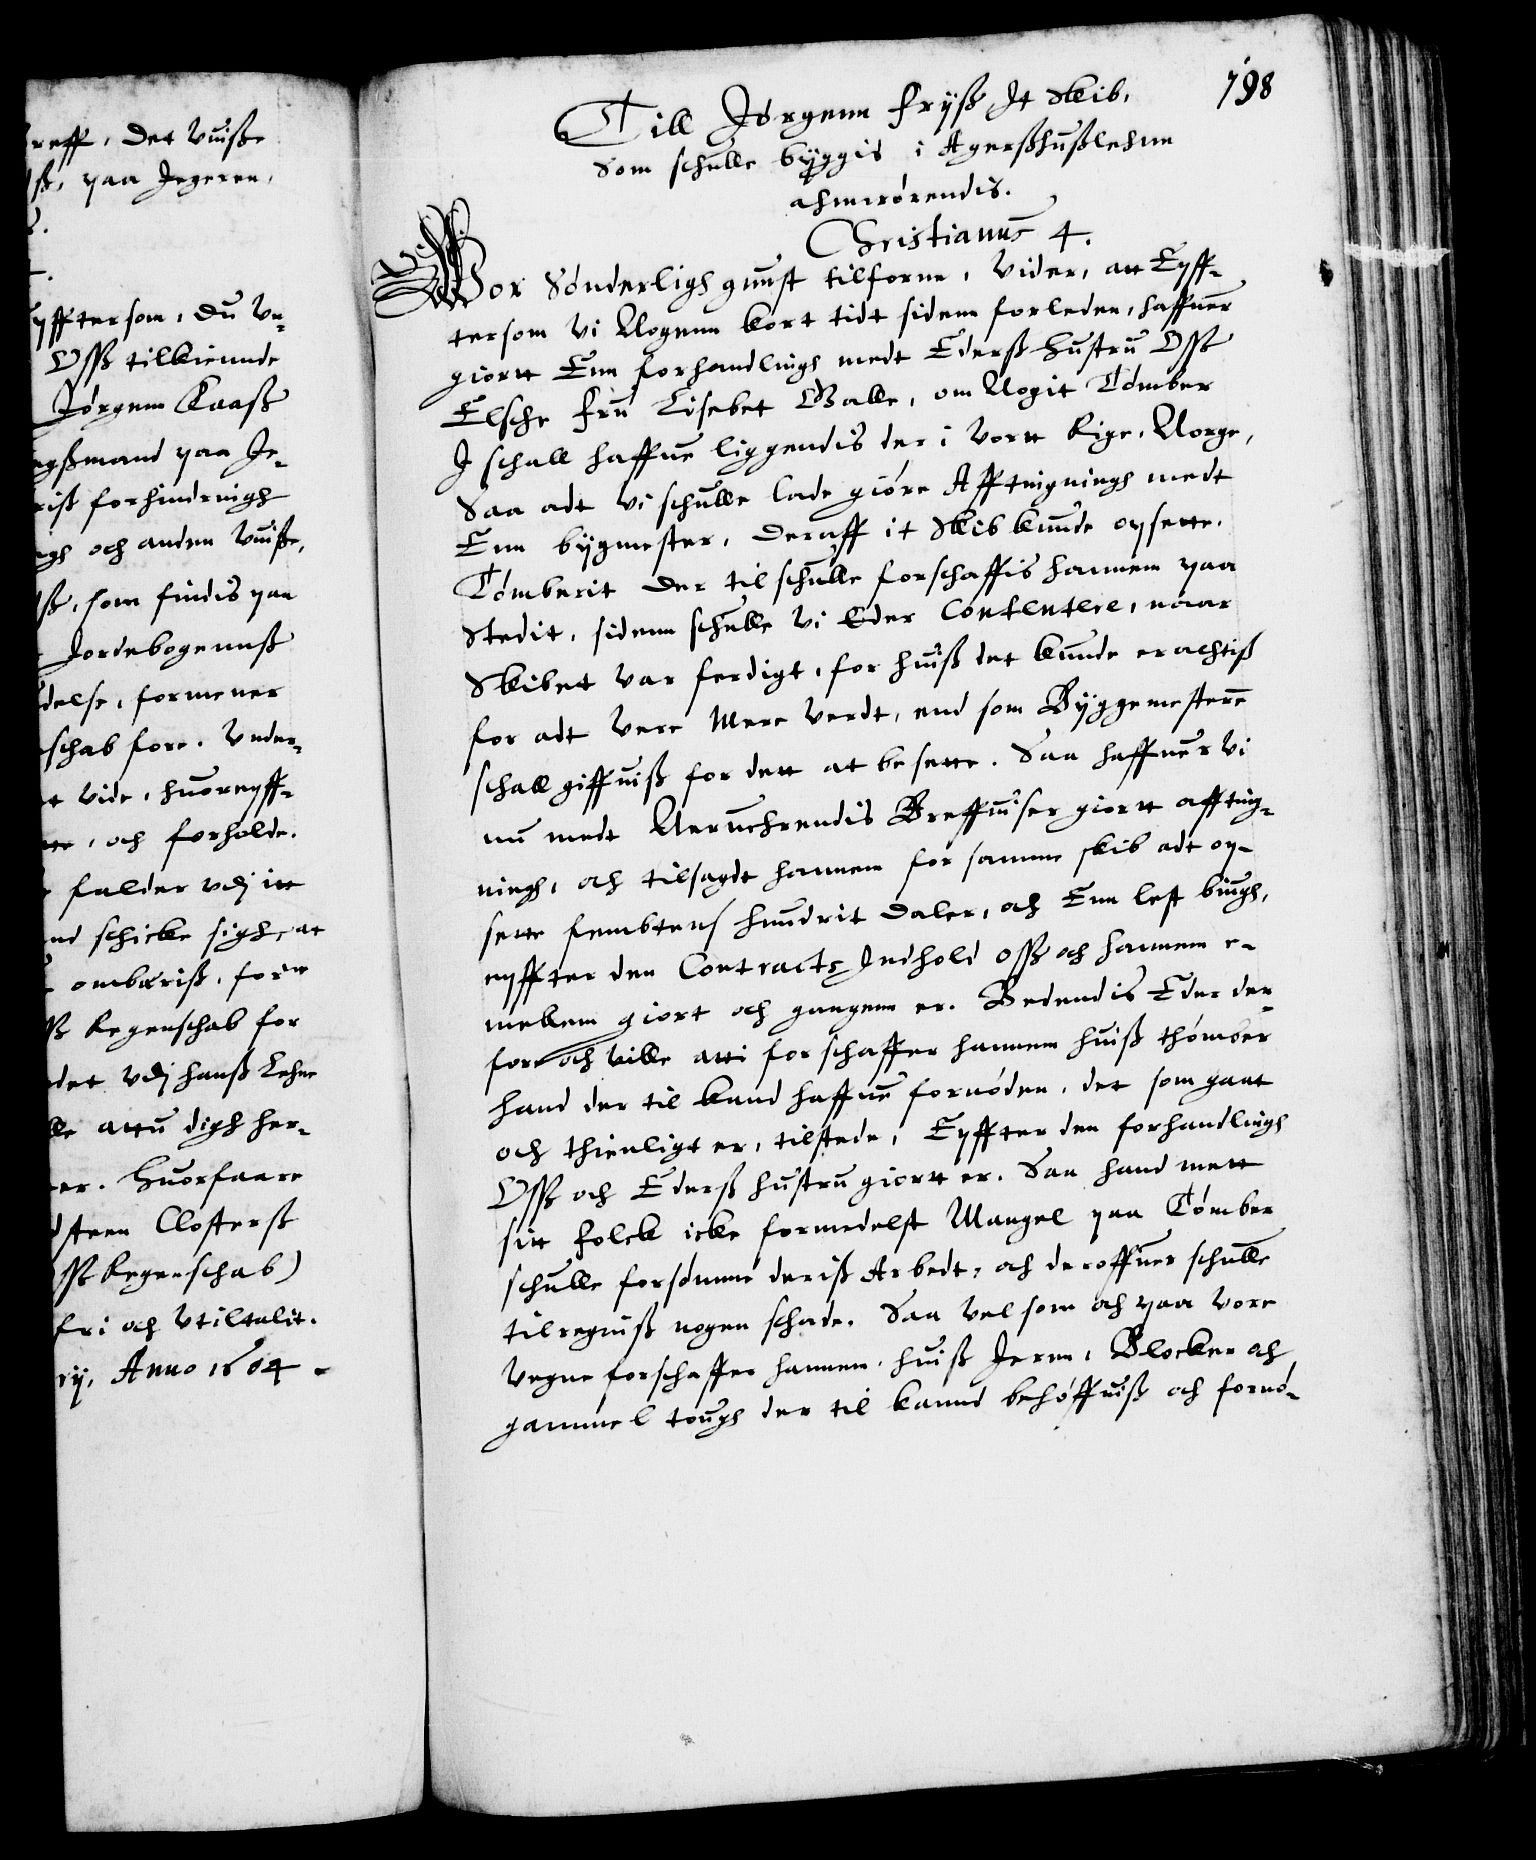 reff, det vuiße
ß, paa Jegeren,
yfftersom, du vn-
Oss tilkiennde
Jørgenn Kaaß
gßmand paa Je-
riß forhindringh
ngh och anden vuiße,
ß, som findis paa
Jordebogennß
delse, formener
schab fore. Vnder-
t vide, huoreyff-
tte, och forholde.
falder vdj itt
nd schicke sigh, at
ombæriß, forn
ß Regenschab for
det vdj hanß Lehne
lle attu digh her-
er. Huorfaare
dsteen Closterß
ß Regenschab)
fri och vtiltalit.
rij, Anno 1604
798
Till Jørgenn Fryß It Skib,
Som schulle byggis i Agerßhußlehnn
ahnrørendis.
Christianus 4.
Vor Sønderligh gunst tilforne, Vider, att Eyff-
tersom vi Nogenn kort tidt sidenn forleden, haffuer
giortt Enn forhandlingh medt Ederß Hustru Oss
Elsche Fru Lisebet Galle, om Nogit Tømber
I schall haffue liggendis der i vortt Rige, Norge,
Saa adt vi schulle lade giøre Afftingningh medt
Enn bygmester, deraff it Skib kunde opsette.
Tømberit der til schulle forschaffis hannem paa
Stedit, sidenn schulle vi Eder Contentere, naar
Skibett var ferdigt, for huiß det kunde erachtiß
for adt vere Mere verdt, end som Byggemesteren
schall giffuiß for dett at besette. Saa haffuer vi
nu medt Neruehrendis Breffuiser giortt affting-
ningh, och tilsagdt hannem for samme skib adt op-
sette fembtenj hundrit daler, och Enn lest biugh,
eyffter den Contractz Indhold oss och hannem e-
mellem giort och gangenn er. Bedendis Eder der-
fore och ville atti forschaffer hannem huiß thømber
hand der til kand haffue fornøden, det som gaat
och thienligt er, tilstede, Eyffter den forhandlingh
Oss och Ederß hustru giortt er. Saa hand mett
sitt folck icke formedelst Mangel paa Tømber
schulle forsømme deriß Arbedt, och deroffuer schulle
tilregniß nogen schade. Saa vel som och paa vore
vegne forschaffer hannem, huiß Jernn, Blocker och
gammel tough der til kannd behøffuiß och fornø-